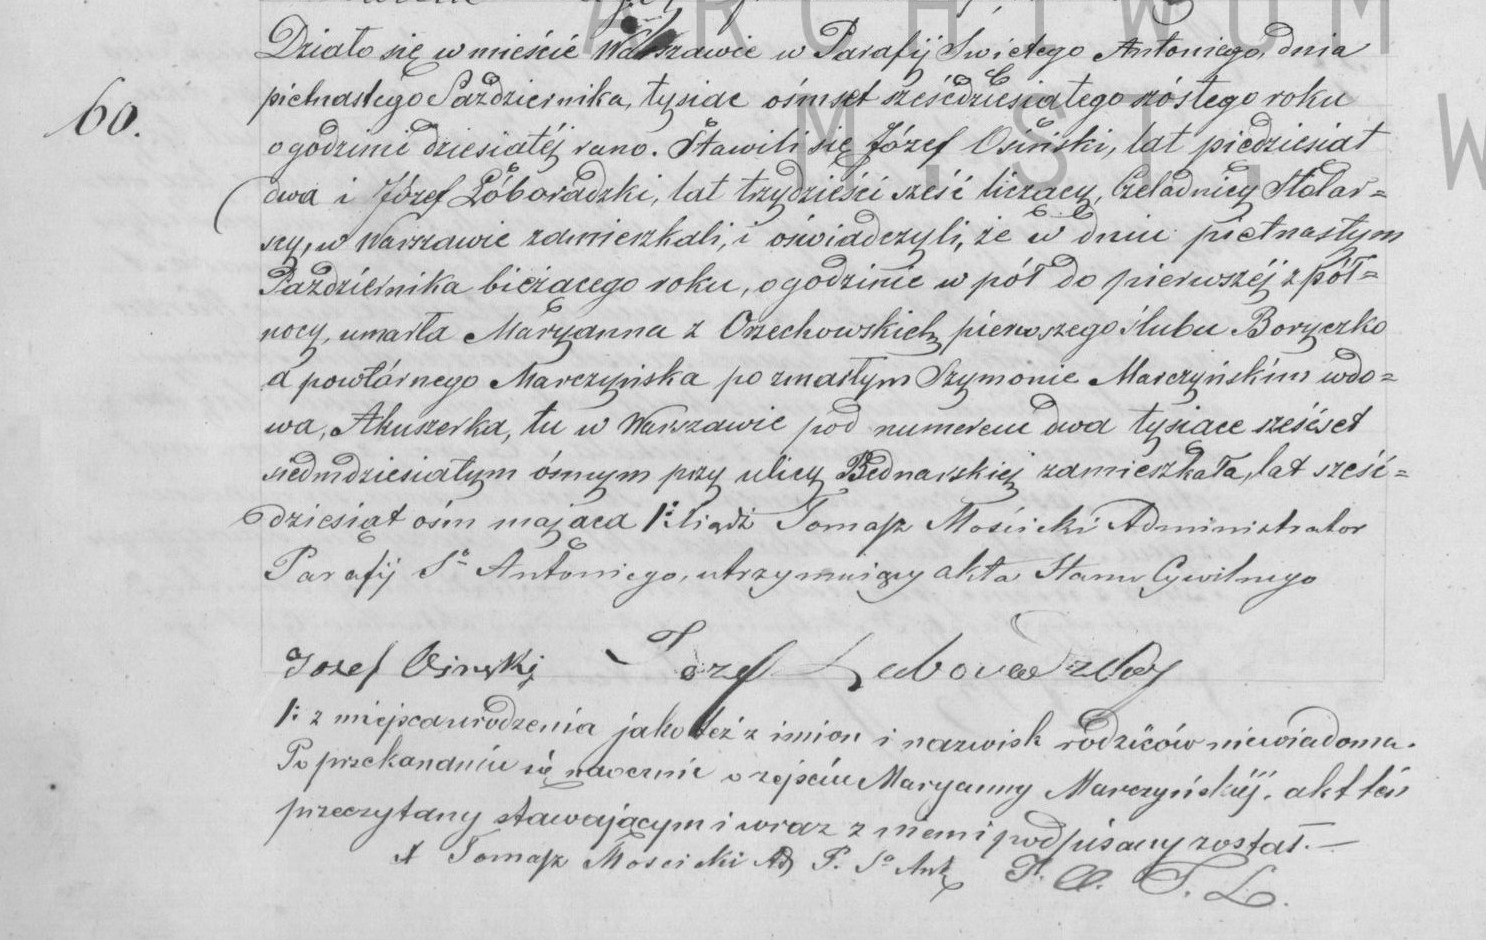 ARCHIWUM
M. ST. W
60.
Działo się w mieście Warszawie w Parafij Świętego Antoniego, dnia
piętnastego Października, tysiąc ośmset sześćdziesiątego szóstego roku
o godzinie dziesiątéj rano. Stawili się Józef Osiński, lat piędziesiąt
dwa i Józef Póboradzki, lat trzydzieści sześć liczący, Czeladnicy Stolar=
scy, w Warszawie zamieszkali, i oświadczyli, że w dniu piętnastym
Października bieżącego roku, o godzinie w pół do pierwszéj z pół=
nocy, umarła Maryanna z Orzechowskich, pierwszego ślubu Boryczko
a powtórnego Marczyńska po zmarłym Szymonie Marczyńskim wdo=
wa, Akuszerka, tu w Warszawie pod numerem dwa tysiące sześćset
siedmdziesiątym ósmym przy ulicy Bednarskiej zamieszkała, lat sześć=
dziesiąt ośm mająca /: Xiądz Tomasz Mościcki Administrator
Parafij Sº Antoniego, utrzymuiący akta Stanu Cywilnego
Jozef Osinski Jozef
/: z miejsca urodzenia jako też z imion i nazwisk rodziców niewiadoma.
Po przekonaniu się naocznie o zejściu Maryanny Marczyńskiéj. akt ten
przeczytany stawającym i wraz z niemi podpisany został. —
X Tomasz Moscicki Ad P. Sº Ant